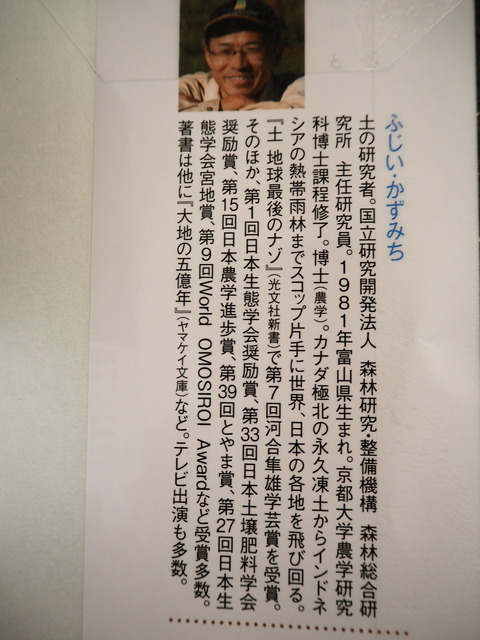 ふじい・かずみち
土の研究者。国立研究開発法人 森林研究・整備機構 森林総合研
究所 主任研究員。1981年富山県生まれ。京都大学農学研究
科博士課程修了。博士(農学)。カナダ極北の永久凍土からインドネ
シアの熱帯雨林までスコップ片手に世界、日本の各地を飛び回る。
『土 地球最後のナゾ』(光文社新書)で第7回河合隼雄学芸賞を受賞。
そのほか、第1回日本生態学会奨励賞、第33回日本土壌肥料学会
奨励賞、第15回日本農学進歩賞、第39回とやま賞、第27回日本生
態学会宮地賞、第9回World OMOSIROI Awardなど受賞多数。
著書は他に『大地の五億年』(ヤマケイ文庫)など。テレビ出演も多数。